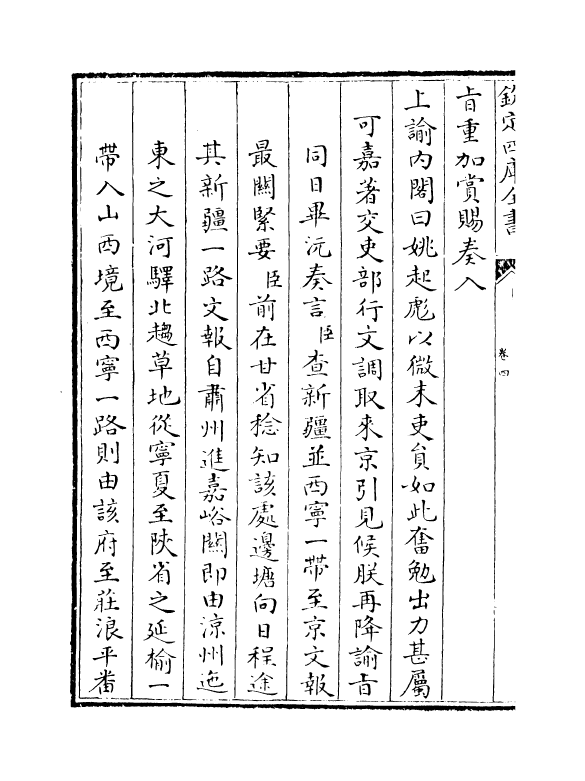 欽定四庫全書
卷四
旨重加賞賜奏入
上諭內閣曰姚起彪以微末吏貟如此奮勉出力甚屬
可嘉著交吏部行文調取來京引見候朕再降諭旨
同日畢沅奏言臣查新疆並西寧一帶至京文報
最關緊要臣前在甘省稔知該處邊塘向日程途
其新疆一路文報自肅州進嘉峪關即由涼州迤
東之大河驛北趨草地從寧夏至陝省之延榆一
帶入山西境至西寧一路則由該府至莊浪平番